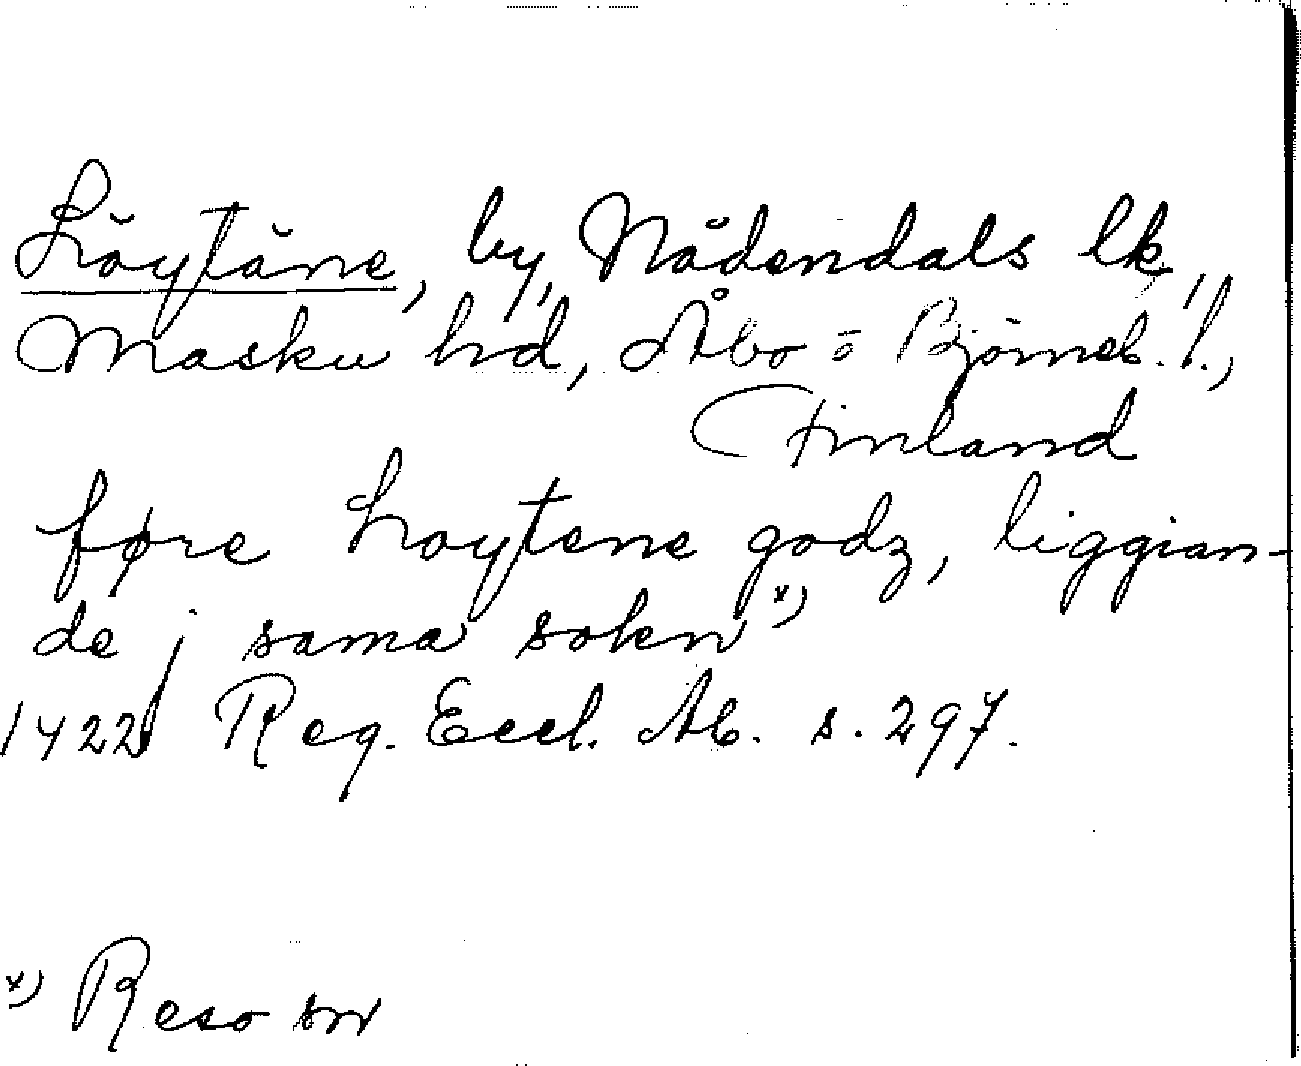 Löytäne, by, Nådendals lk,
Masku hd, Åbo o Björneb. l.,
Finland
føre Loytene godz, liggian-
de j sama sokn x)
1422 Reg. Eccl. Ab. s. 297.
x) Reso sn